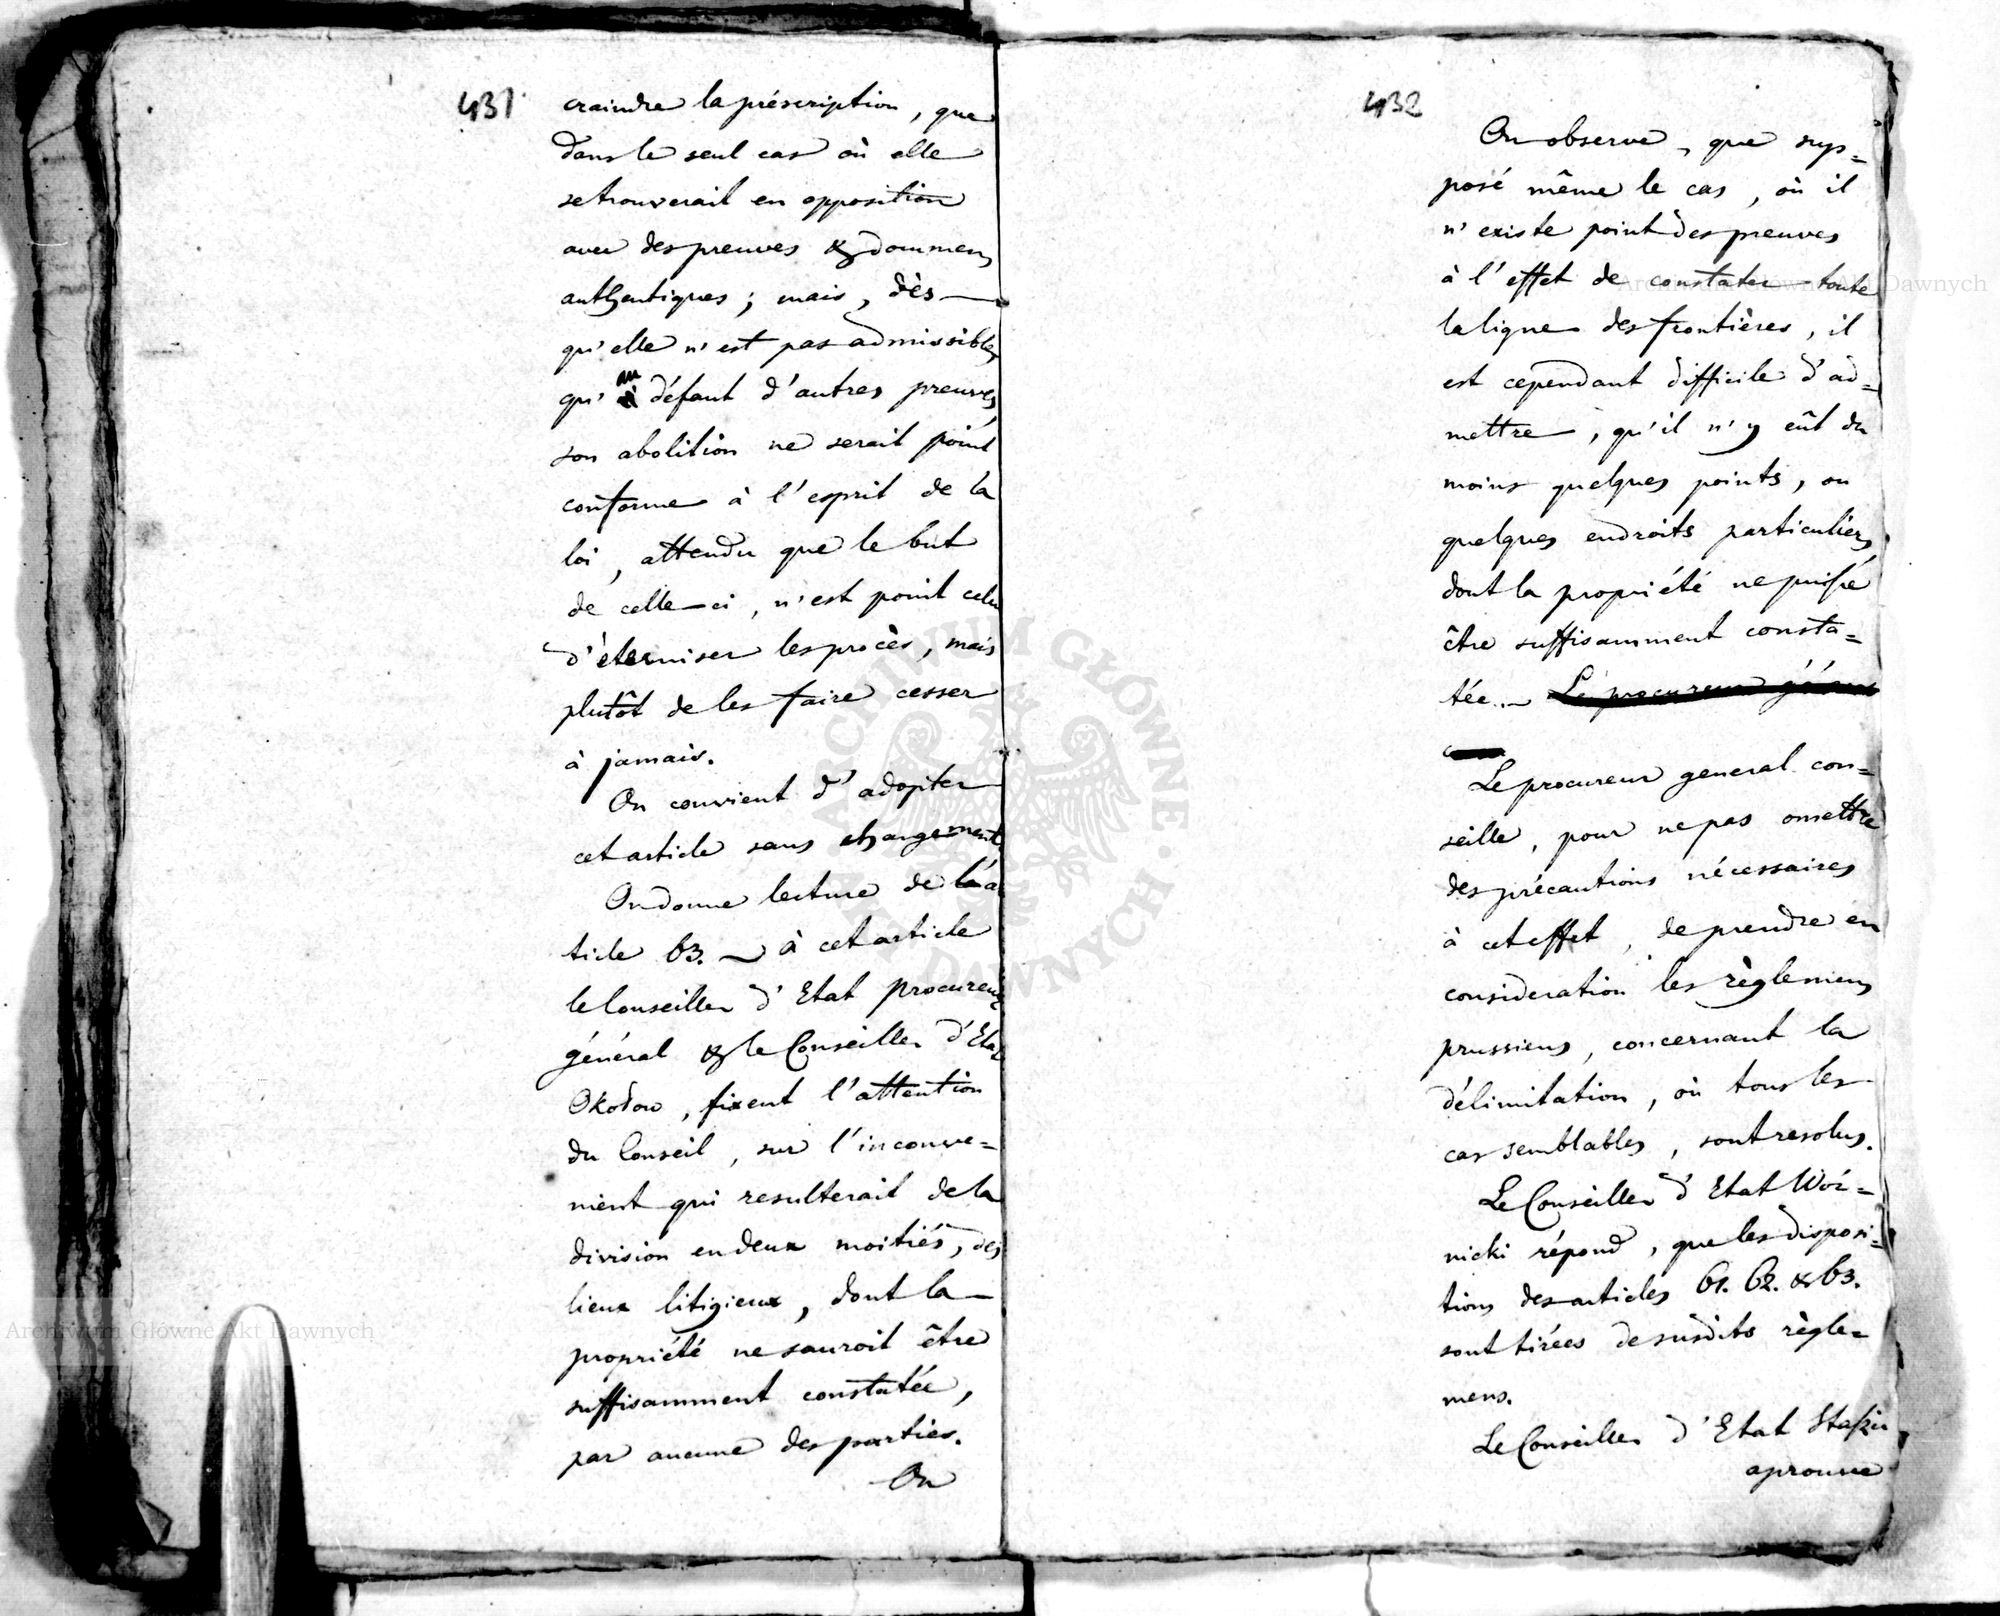 431
craindre la préscription, que
dans le seul cas où elle
se trouverait en opposition
avec des preuves & documens
authentiques; mais, dès
qu'elle n'est pas admissible,
qu'au défaut d'autres preuves,
son abolition ne serait point
conforme à l'esprit de la
loi, attendu que le but
de celle-ci, n'est point celui
d'éterniser les procès, mais
plutôt de les faire cesser
à jamais.
On convient d'adopter
cet article sans changement.
On donne lecture de l'ar
ticle 63. à cet article
le Conseiller d'Etat procureur
général & le Conseiller d'Etat
Okołow, fixent l'attention
du Conseil, sur l'inconve=
nient qui resulterait de la
division en deux moitiés, des
lieux litigieux, dont la
propriété ne sauroit être
suffisamment constatée,
par aucune des parties.
On
432
On observe, que sup=
posé même le cas, où il
n'existe point des preuves
à l'effet de constater toute
la ligne des frontières, il
est cependant difficile d'ad=
mettre, qu'il n'y eût du
moins quelques points, ou
quelques endroits particuliers,
dont la propriété ne puisse
être suffisamment consta=
tée. Le procureur géneral
Le procureur general con=
seille, pour ne pas omettre
des précautions nécessaires
à cet effet, de prendre en
consideration les règlemens
prussiens, concernant la
délimitation, où tous les
cas semblables, sont resolus.
Le Conseiller d'Etat Woź=
nicki répond, que les disposi=
tions des articles 61. 62. & 63.
sont tirées desusdits règle=
mens.
Le Conseiller d'Etat Staszic
aprouve
Archiwum Główne Akt Dawnych
Archiwum Główne Akt Dawnych
ARCHIWUM GŁÓWNE · AKT DAWNYCH ·